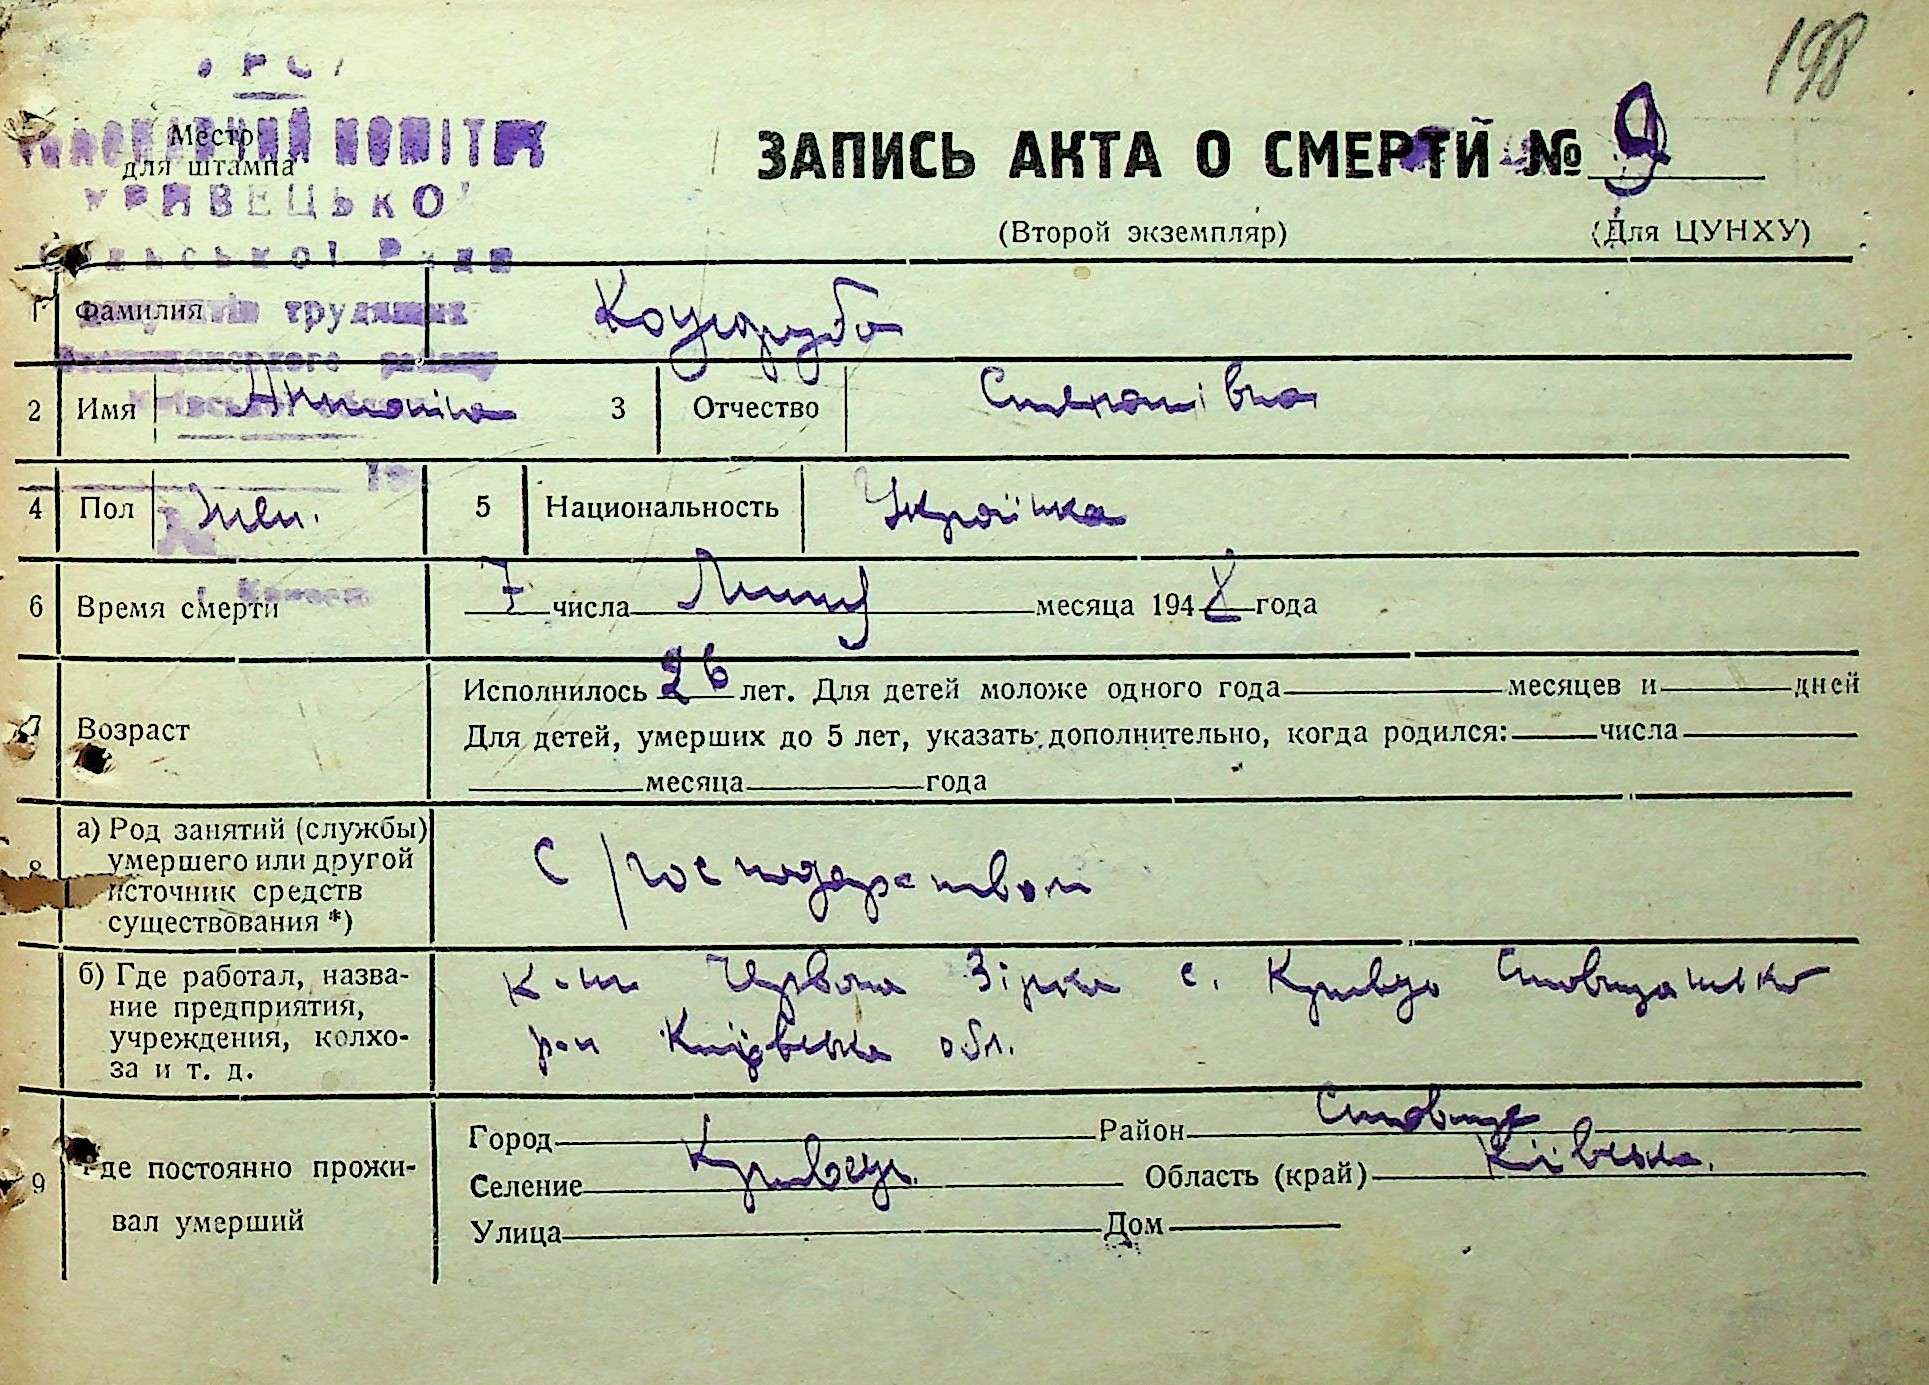 198
Место
для штампа
КОМІТЕТ
КРИВЕЦЬКОЇ
Сільської Ради
депутатів трудящих
ЗАПИСЬ АКТА О СМЕРТИ № 9
(Второй экземпляр) (Для ЦУНХУ)
1 Фамилия
2 Имя Антоніна 3 Отчество Степанівна
4 Пол жен. 5 Национальность Українка
6 Время смерти 7 числа Липня месяца 194 года
7 Возраст
Исполнилось 26 лет. Для детей моложе одного года месяцев и дней
Для детей, умерших до 5 лет, указать дополнительно, когда родился: числа
месяца года
8 а) Род занятий (службы)
умершего или другой
источник средств
существования *)
С/господарством
б) Где работал, назва-
ние предприятия,
учреждения, колхо-
за и т. д.
к-п Червона Зірка с. Кривец
р-н Київська обл.
9 Где постоянно прожи-
вал умерший
Город Район Ставище
Селение Кривець Область (край) Київська.
Улица Дом